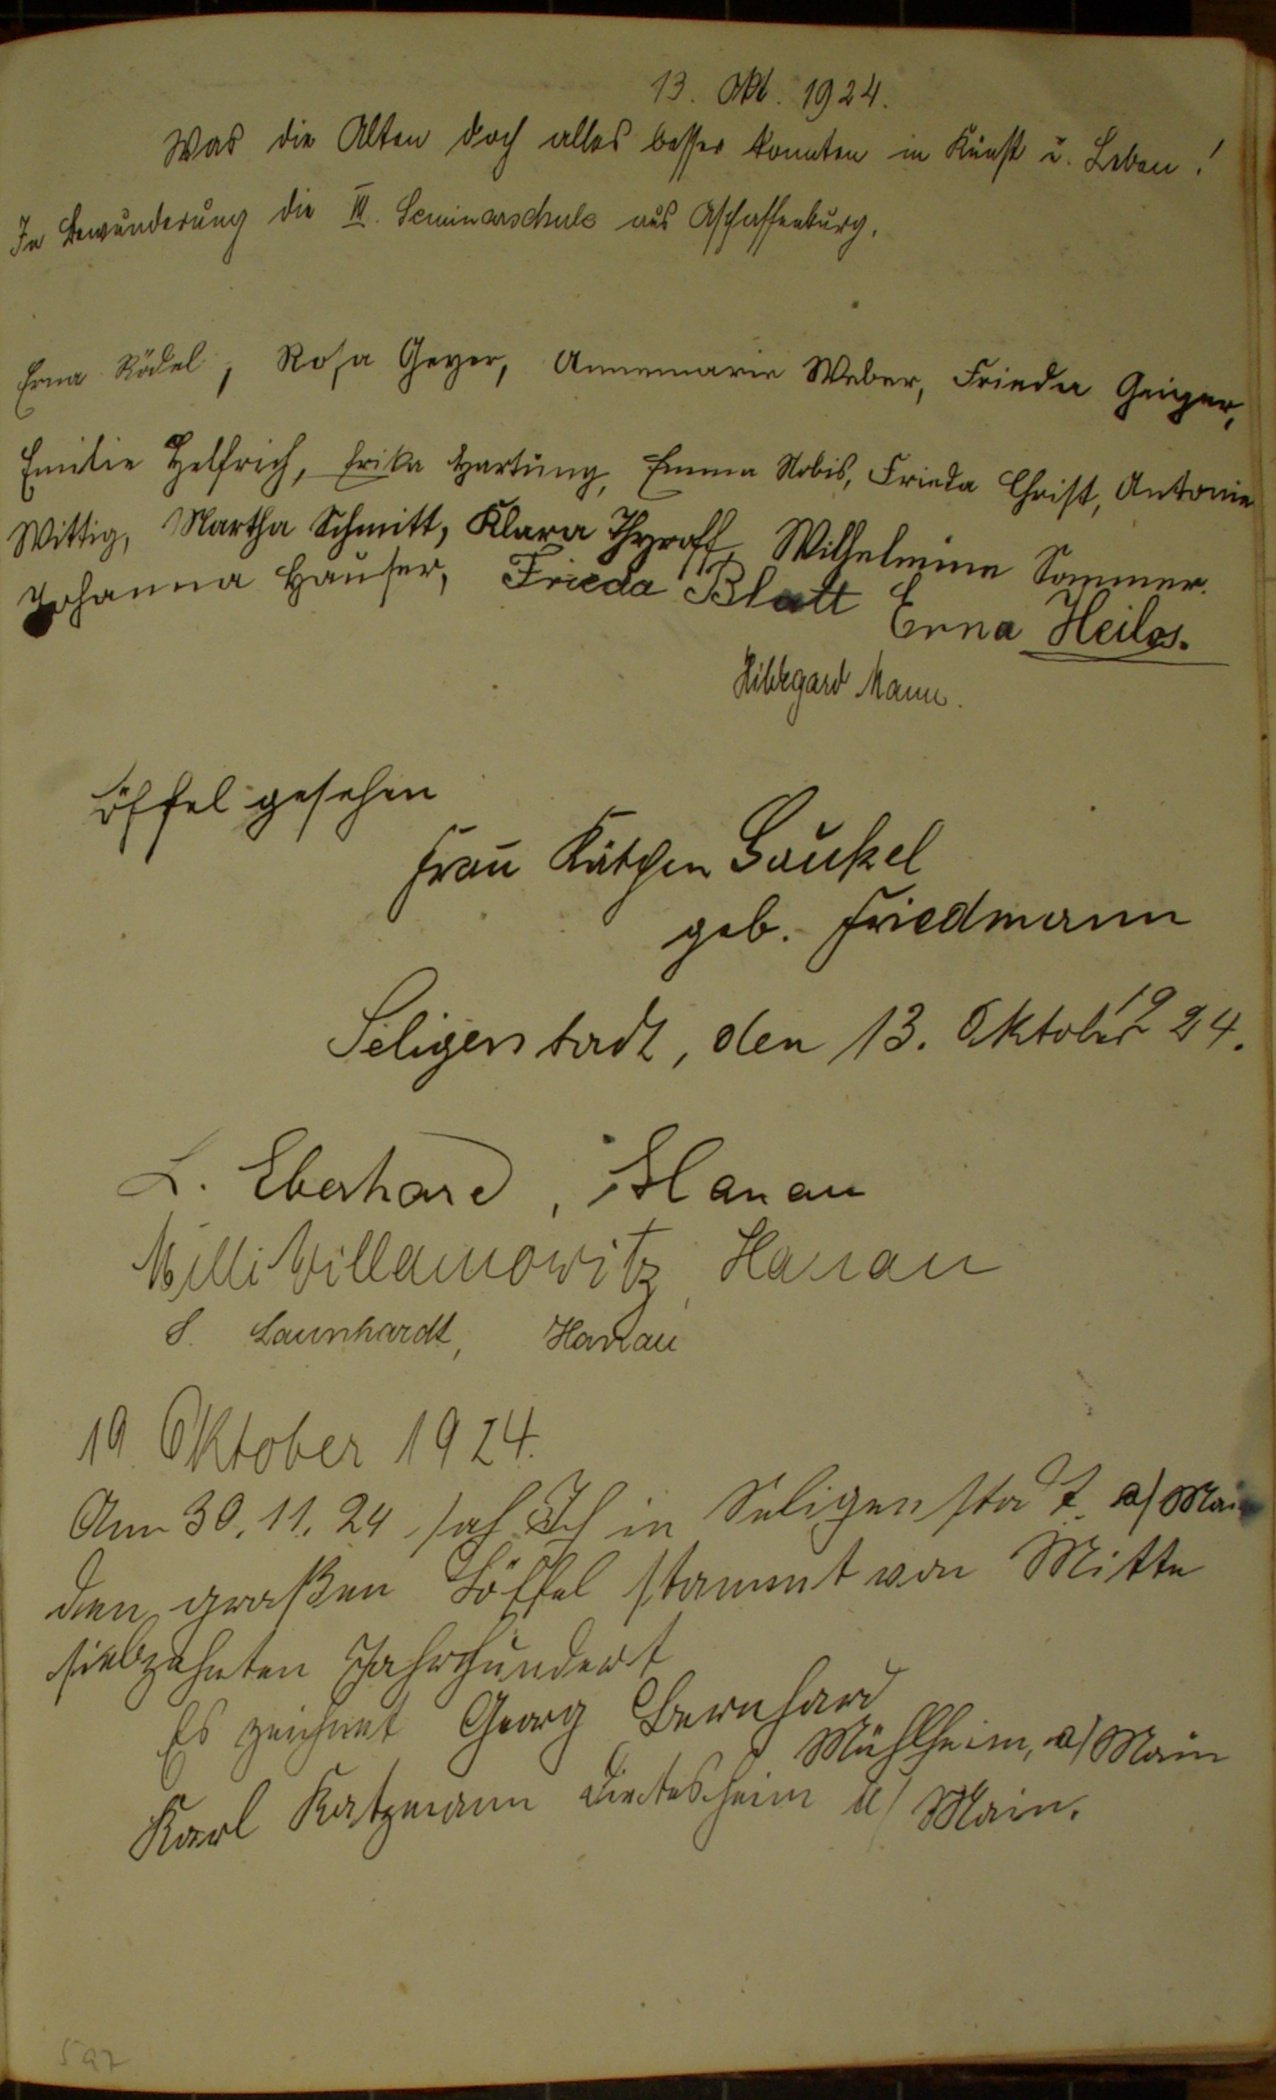 13. Okt. 1924.
Was die Alten doch alles besser konnten in Kunst u. Leben!
In Bewunderung die III. Seminarschule aus Aschaffenburg.
Erna Rödel, Rosa Geyer, Annemarie Weber, Frieda Geiger,
Emilie Helfrich, Erika Hartung, Emma Nobis, Frieda Christ, Antonie
Wittig, Martha Schmitt, Klara Thyroff, Wilhelmine Sommer.
Johanna Hauser, Frieda Blatt Erna Heilos.
Hildegard Mann.
Löffel gesehen
Frau Kätchen
geb. Friedmann
Seligenstadt, den 13. Oktober 1924.
L. Eberhard, Hanau
Willi Villamowitz, Hanau
Launhardt, Hanau
19. Oktober 1924.
Am 30. 11. 24 sah Ich in Seligenstadt a/ Main
den großen Löffel stammt von Mitte
siebzehnten Jahrhundert
Es zeichnet Georg Bernhard
Mühlheim, a/ Main
Karl Katzmann Dietesheim a/ Main.
597